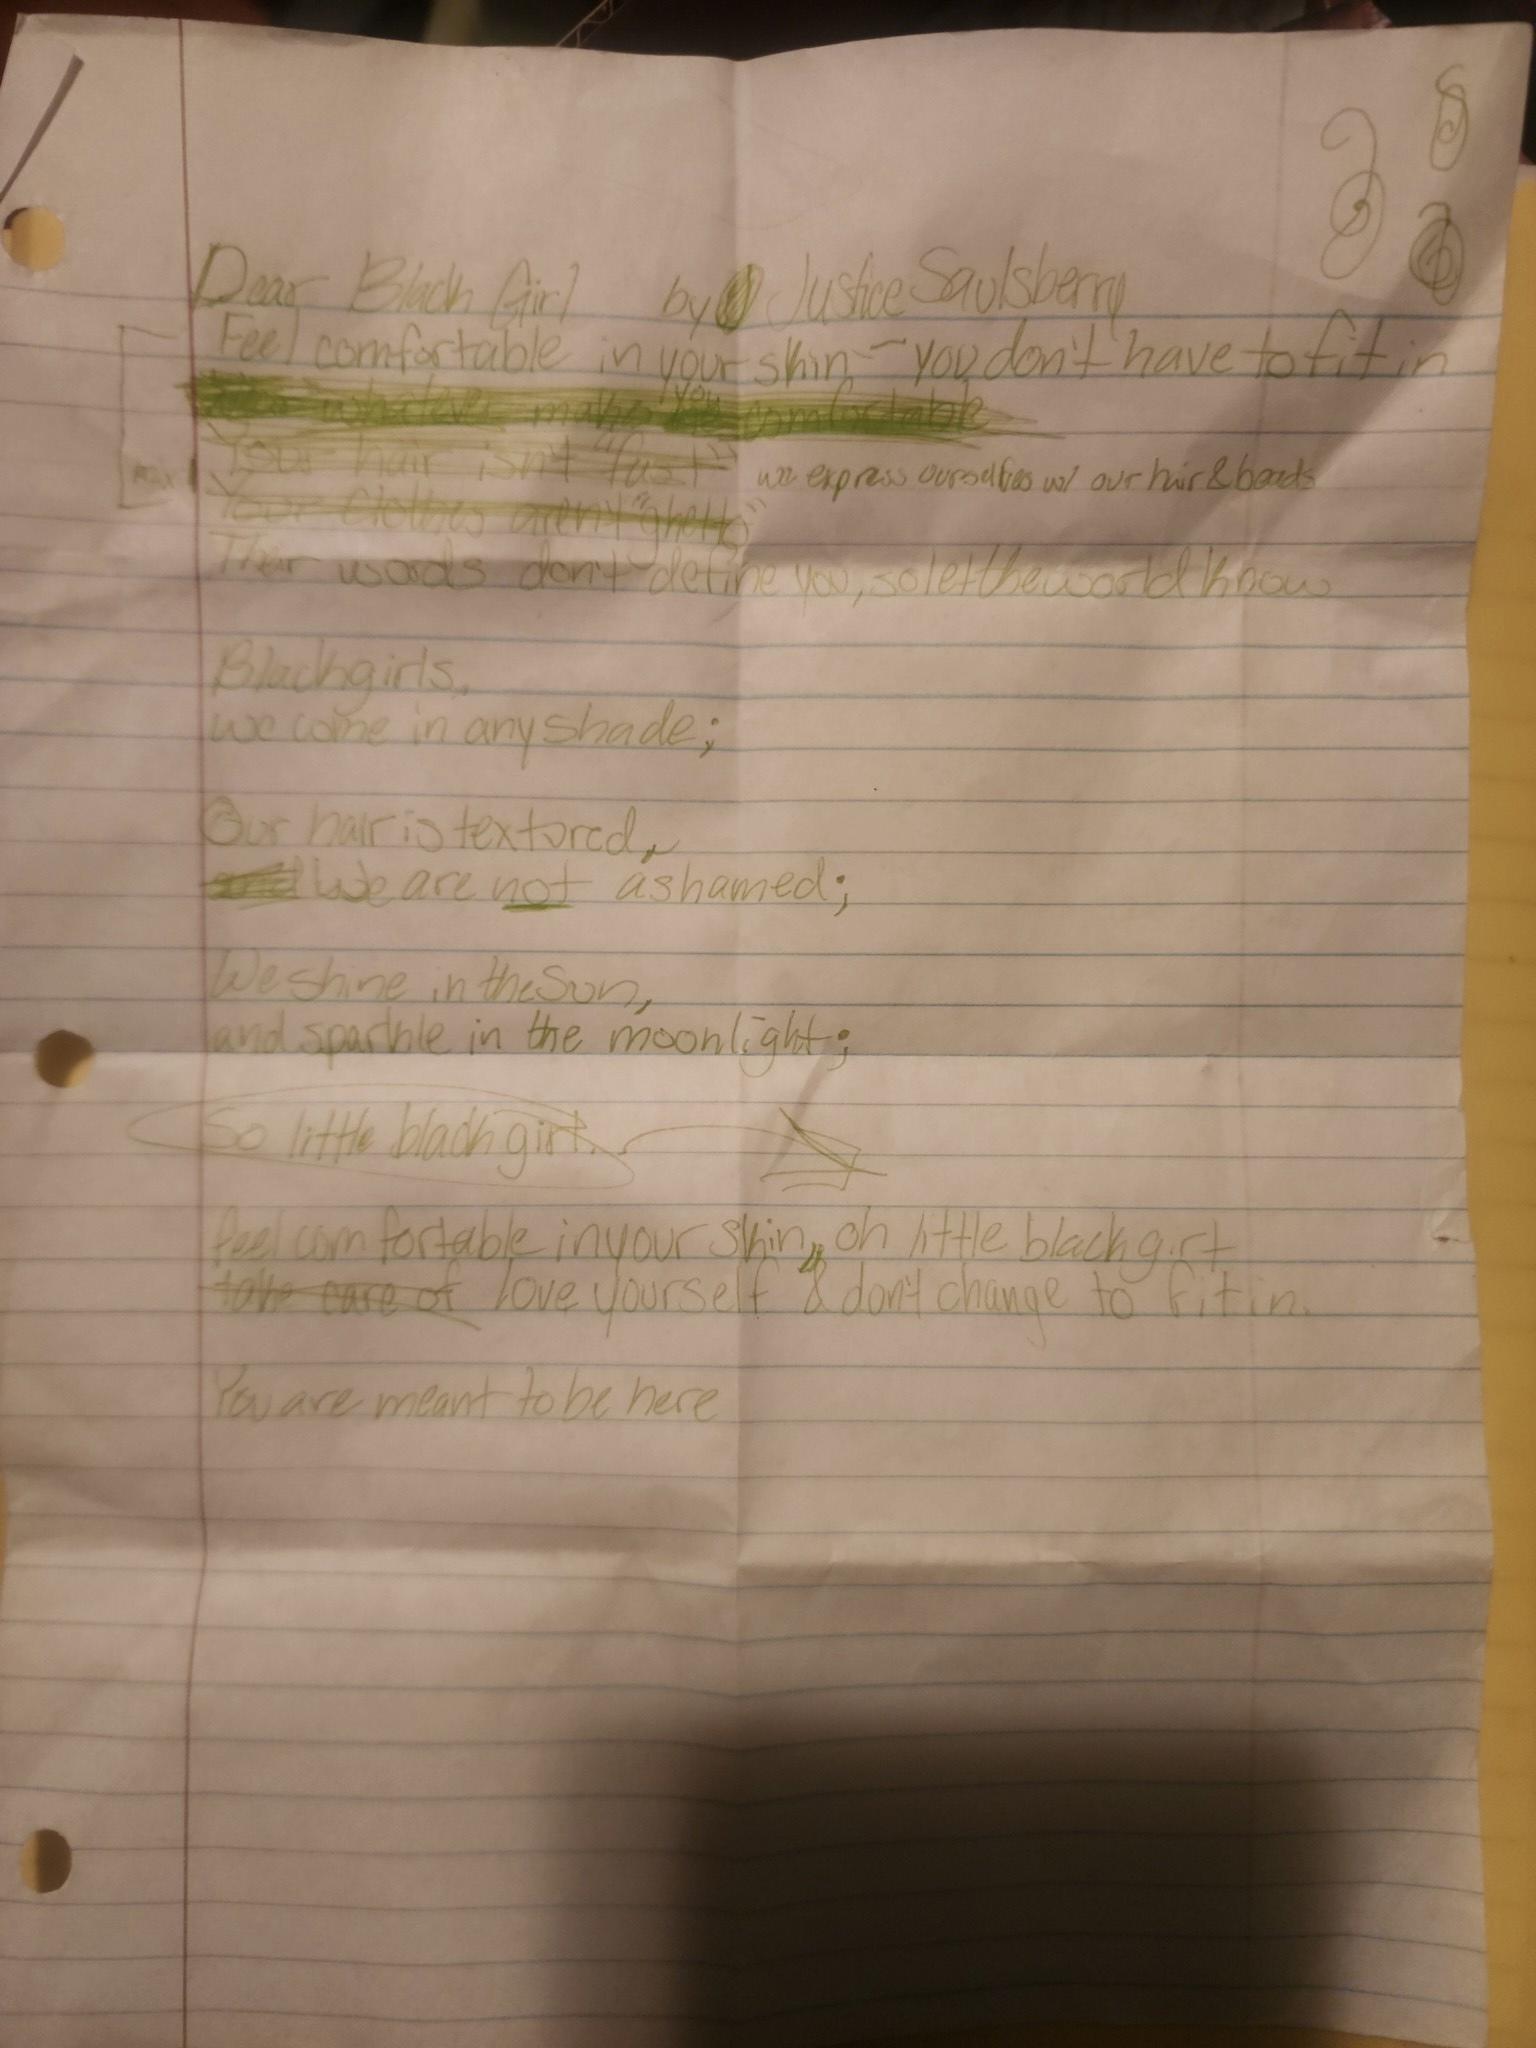 Dear Black Girl by Justice Saulsberry
Feel comfortable in your skin - you don't have to fit in
whatever make you comfortable
Your hair isn't "fast" we express ourselves w/ our hair & beads
Your clothes aren't "ghetto"
Their words don't define you, so let the world know
Black girls,
we come in any shade;
Our hair is textured,
and We are not ashamed;
We shine in the Sun,
and sparkle in the moonlight;
So little black girl,
feel comfortable in your skin, oh little black girl
take care of love yourself & don't change to fit in.
You are meant to be here